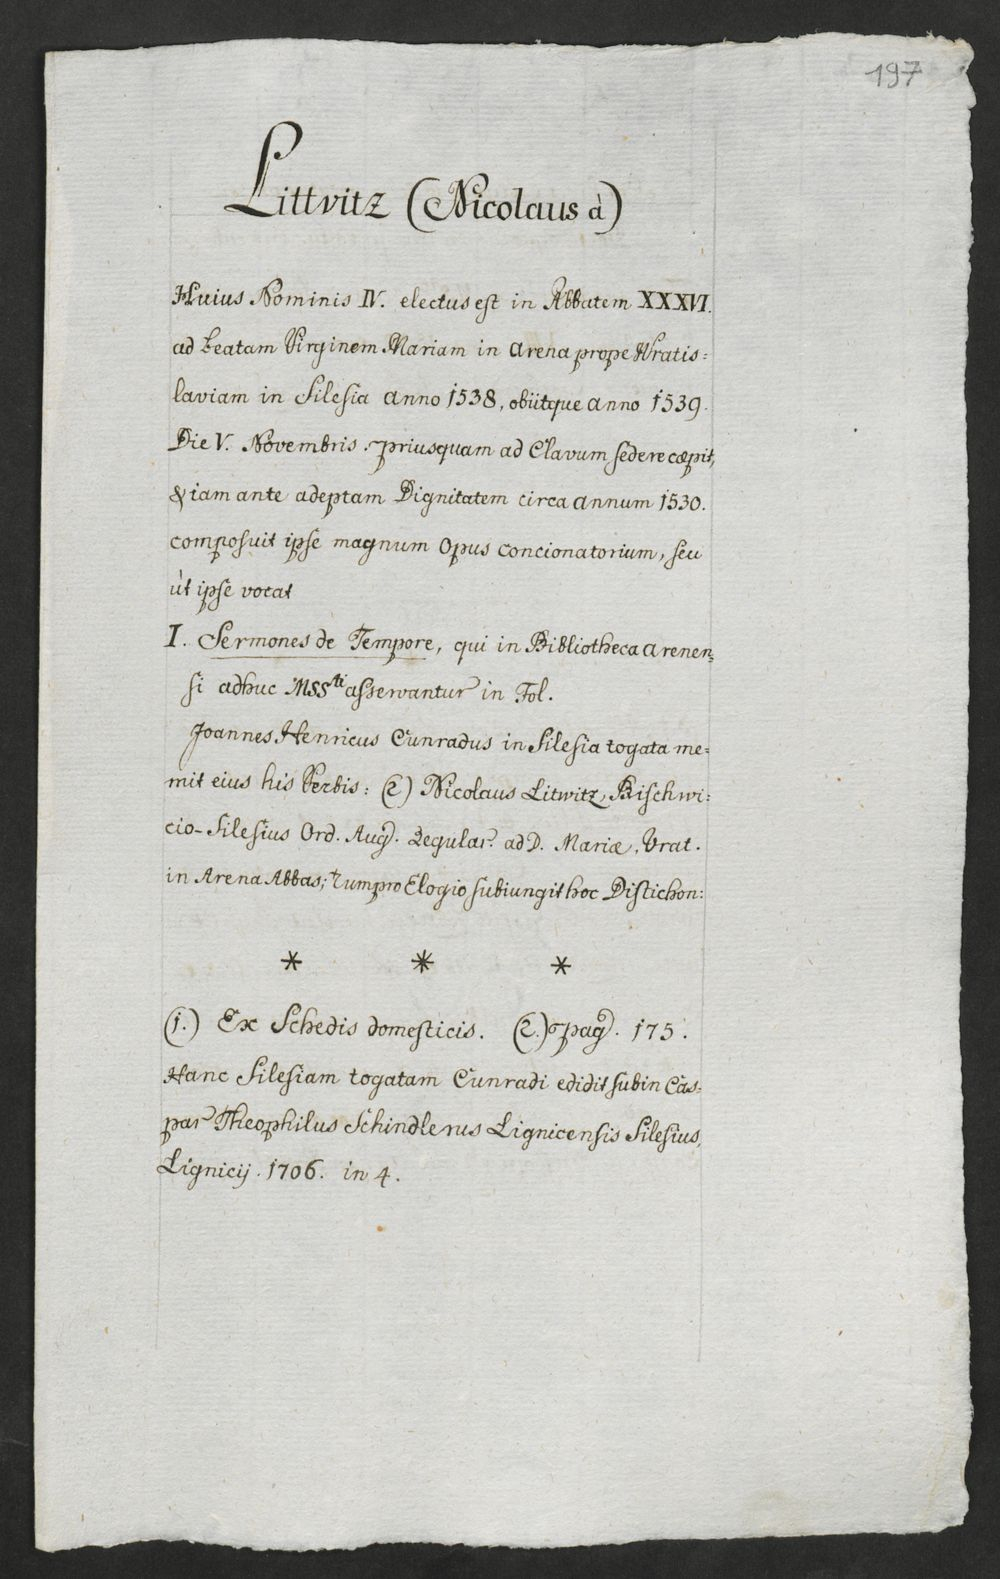 197
Littvitz (Nicolaus à)
Huius Nominis IV. electus est in Abbatem XXXVI.
ad beatam Virginem Mariam in Arena prope Wratis=
laviam in Silesia anno 1538, obiitque anno 1539.
Die V. Novembris. priusquam ad Clavum sedere cæpit,
& iam ante adeptam Dignitatem circa annum 1530.
composuit ipse magnum Opus concionatorium, seu
ùt ipse vocat
I. Sermones de Tempore, qui in Bibliotheca arenen=
si adhuc MSSti asservantur in Fol.
Joannes Henricus Cunradus in Silesia togata me=
mit eius his Verbis: (2) Nicolaus Litwitz, Bischwi=
cio-Silesius Ord. Aug. Regular. ad D. Mariæ, Vrat.
in Arena Abbas; tum pro Elogio subiungit hoc Distichon:
* * *
(1.) Ex Schedis domesticis. (2.) pag. 175.
Hanc Silesiam togatam Cunradi edidit subin Cas=
par Theophilus Schindlerus Lignicensis Silesius,
Lignicij. 1706. in 4.